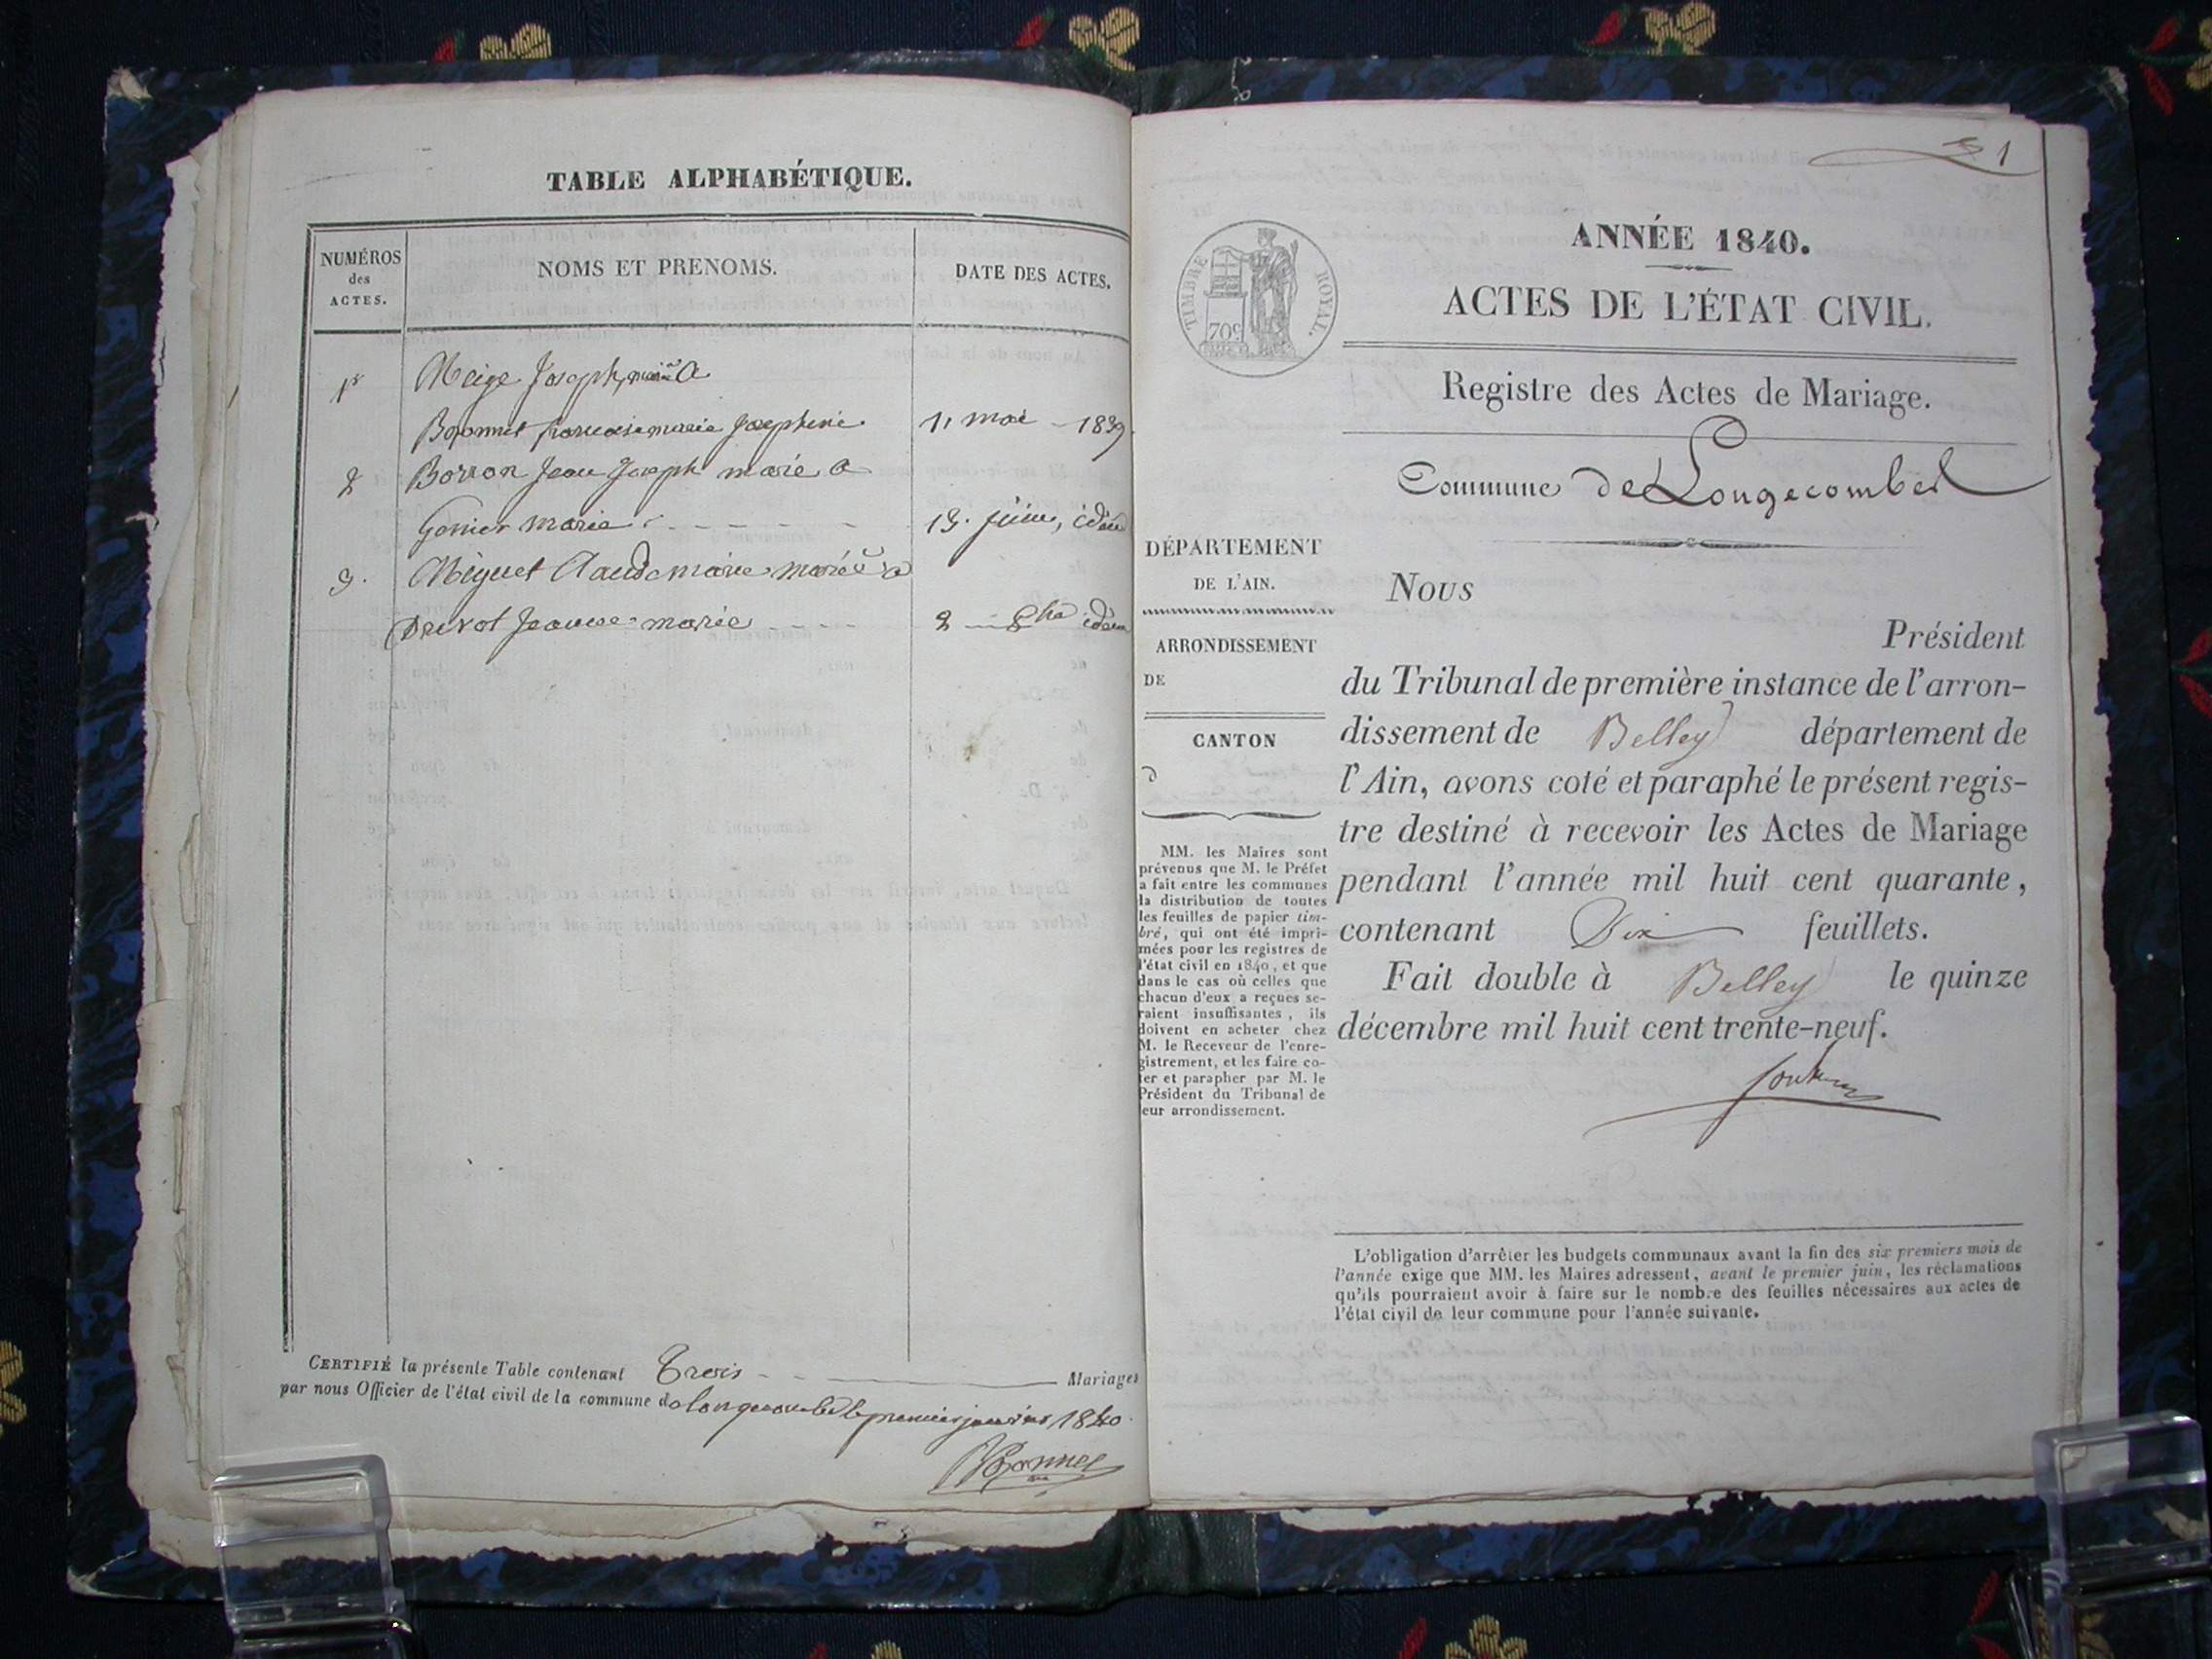 TABLE ALPHABÉTIQUE.
NUMÉROS
des
ACTES.
NOMS ET PRENOMS.
DATE DES ACTES.
1r
Meige Joseph, marié a
Bonnet françoise marie Josephine
11 mai - 1839
2
Borron Jean Joseph marié a
Genier marie
13. juin, idem
3.
Miguet Claude marie marié a
Drevot Jeanne-marie
2 8bre idem
CERTIFIÉ la présente Table contenant Trois Mariages
par nous Officier de l'état civil de la commune de longecombe le premier janvier 1840.
Bonnet
1
TIMBRE ROYAL.
70c
ANNÉE 1840.
ACTES DE L'ÉTAT CIVIL.
Registre des Actes de Mariage.
Commune de Longecombe
DÉPARTEMENT
DE L'AIN.
ARRONDISSEMENT
DE
CANTON
d
MM. les Maires sont
prévenus que M. le Préfet
a fait entre les communes
la distribution de toutes
les feuilles de papier tim-
bré, qui ont été impri-
mées pour les registres de
l'état civil en 1840, et que
dans le cas où celles que
chacun d'eux a reçues se-
raient insuffisantes, ils
doivent en acheter chez
M. le Receveur de l'enre-
gistrement, et les faire co-
ter et parapher par M. le
Président du Tribunal de
leur arrondissement.
Nous
Président
du Tribunal de première instance de l'arron-
dissement de Belley département de
l'Ain, avons coté et paraphé le présent regis-
tre destiné à recevoir les Actes de Mariage
pendant l'année mil huit cent quarante,
contenant Dix feuillets.
Fait double à Belley le quinze
décembre mil huit cent trente-neuf.
L'obligation d'arrêter les budgets communaux avant la fin des six premiers mois de
l'année exige que MM. les Maires adressent, avant le premier juin, les réclamations
qu'ils pourraient avoir à faire sur le nombre des feuilles nécessaires aux actes de
l'état civil de leur commune pour l'année suivante.